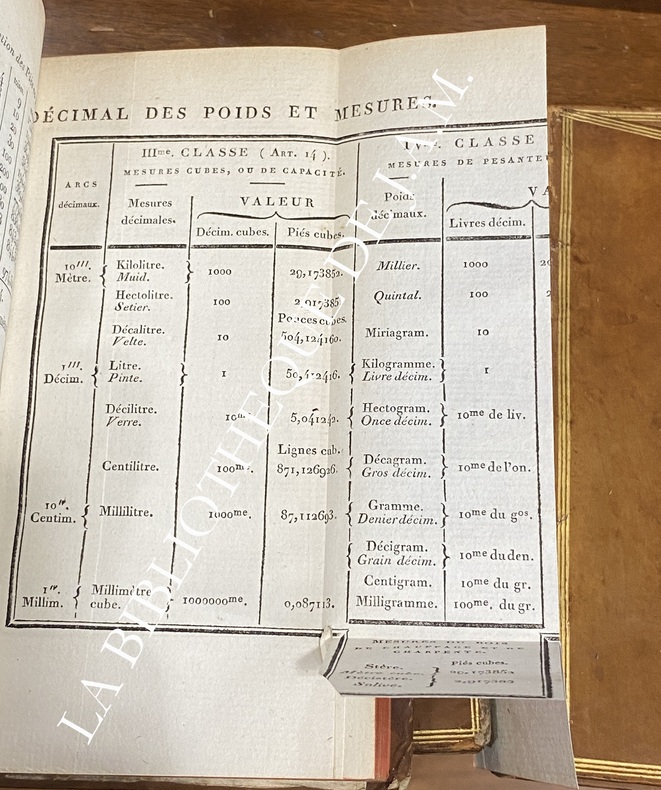 DÉCIMAL DES POIDS ET MESURES.
ARCS
décimaux.
IIIme. CLASSE ( ART. 14 ).
MESURES CUBES, OU DE CAPACITÉ.
Mesures
décimales.
VALEUR
Décim. cubes. Piés cubes.
IVme. CLASSE
MESURES DE PESANTE
Poids
décimaux.
VA
Livres décim.
10'''. Mètre. { Kilolitre. Muid. } 1000 29,173852. Millier. 1000
Hectolitre. Setier. 100 2,917385 Quintal. 100
Pouces cubes.
Décalitre. Velte. 10 504,124160. Miriagram. 10
1'''. Décim. { Litre. Pinte. } 1 50,412416. { Kilogramme. Livre décim. } 1
Décilitre. Verre. 10me. 5,041242. { Hectogram. Once décim. } 10me de liv.
Lignes cub.
Centilitre. 100me. 871,126926. { Décagram. Gros décim. } 10me de l'on.
10iv. Centim. { Millilitre. 1000me. 87,112693. { Gramme. Denier décim. } 10me du gos.
{ Décigram. Grain décim. } 10me du den.
Centigram. 10me du gr.
1iv. Millim. { Millimètre cube. } 1000000me. 0,087113. Milligramme. 100me. du gr.
MESURES DE BOIS
DE CHAUFFAGE ET DE
CHARPENTE.
Piés cubes.
Stère.
Mètre cube. } 29,173852
Décistère.
Solive. 2,917385
LA BIBLIOTHEQUE DE J. M.